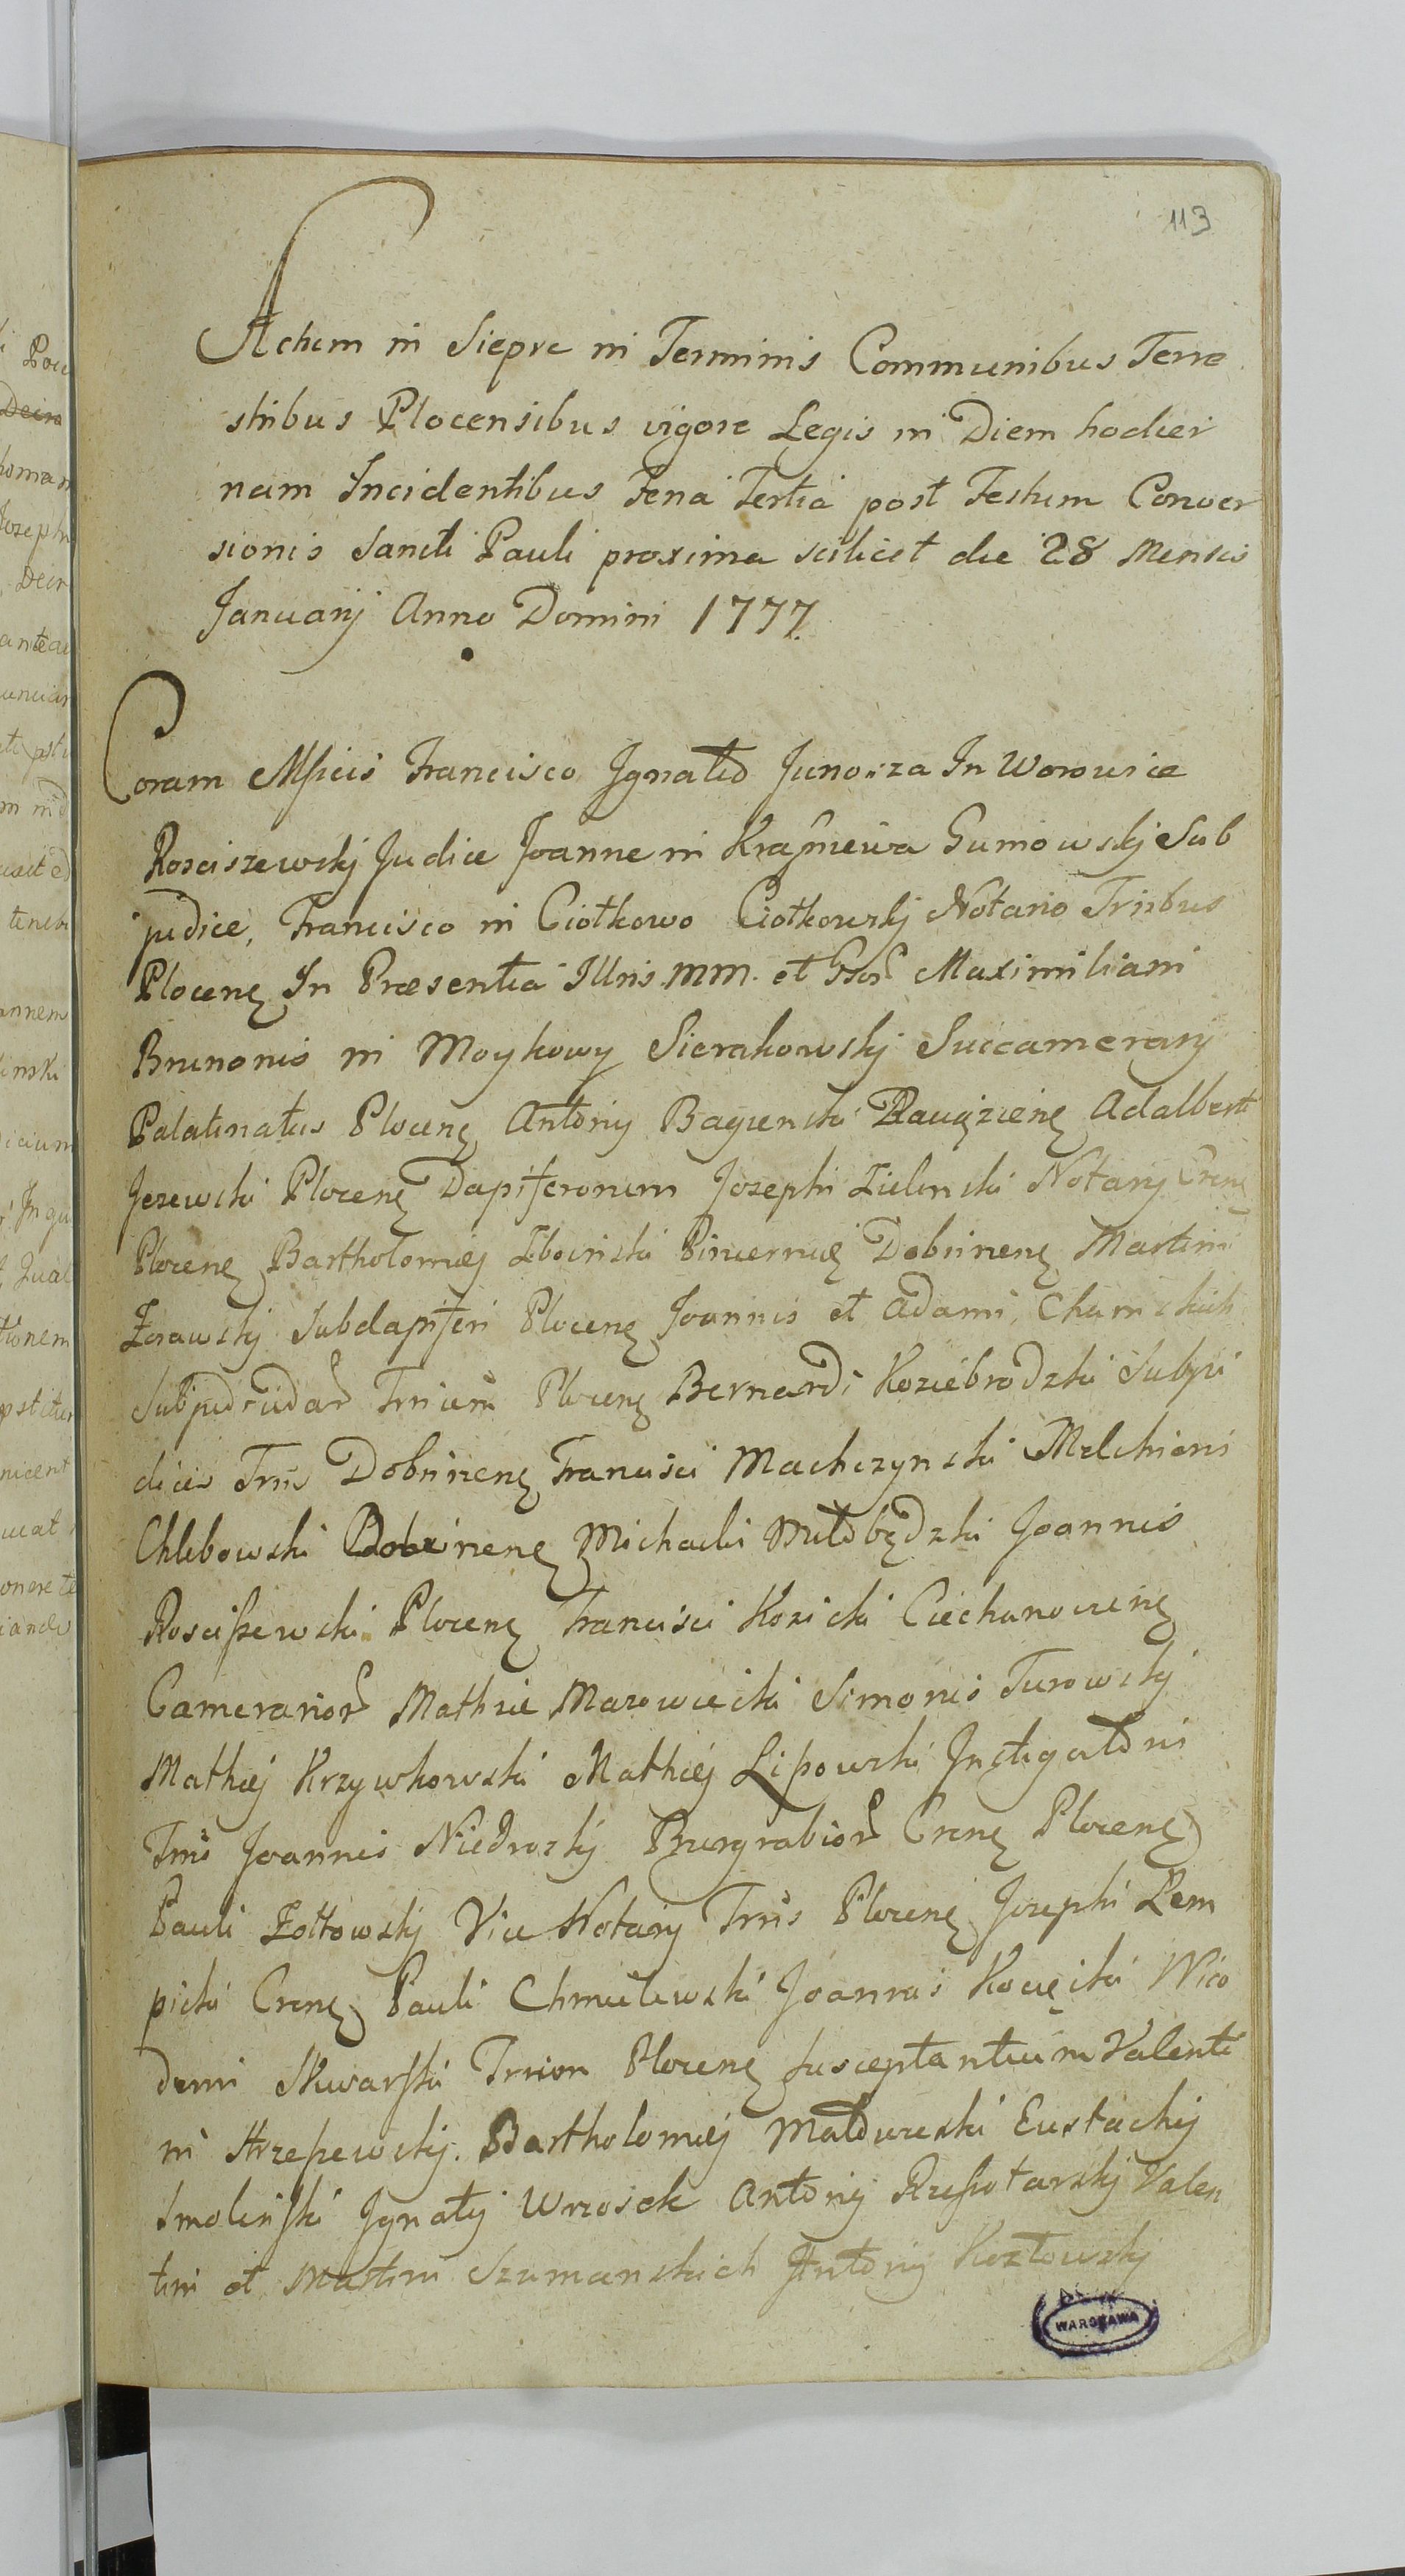 113
Actum in Siepre in Terminis Communibus Terre
stribus Plocensibus vigore Legis in Diem hodier
nam Incidentibus Feria Tertia post Festum Conver
sionis Sancti Pauli proxima scilicet die 28 Mensis
Januarij Anno Domini 1777.
Coram Mficis Francisco Ignatio Junosza In Worowice
Rosciszewskj Judice Joanne in Gumowskj Sub
judice, Francisco in Ciołkowo Ciołkowskj Notario Trribus
Plocenę In Præsentia Illris. MM. et Maximiliani
Brunonis in Moykowy Sierakowskj Succamerarij
Palatinatus Plocenę Antonij Bagienski Adalberti
Jezewski Plocenę Dapiferorum Josephi Zielinski Notarij Crenę
Plocenę Bartholomęj Zboinski Pincernę Dobrinenę Martini
Zorawskj Subdapiferi Plocenę Joannis et Adami Chamskich
Plocenę Bernardi Koziebrodzki Subju
dicis Trris Dobrinenę Francisci Machczynski Melchioris
Chlebowski Dobrinenę Michaelis Miłobędzki Joannis
Rosciszewski Plocenę Francisci Kozicki Ciechanovienę
Camerarior Mathiæ Mazowiecki Simonis Turowskj
Mathięj Krzywkowski Mathięj Lipowski Instigatoris
Trris Joannis Niedroskj Burgrabior Crenę Plocenę
Pauli Zołtowskj Vice Notarij Trris Plocenę Josephi Lem
picki Crenę Pauli Chmielewski Joannis Kocięcki Nico
demi Skwarski Trrium Plocenę Susceptantium Valenti
ni Strzeszewskj. Bartholomęj Eustachij
Smolinski Ignatij Wrzosek Antonij Rzeszotarskj Valen
tini et Martini Szumanskich Antonij Kozłowskj
WARSZAWA